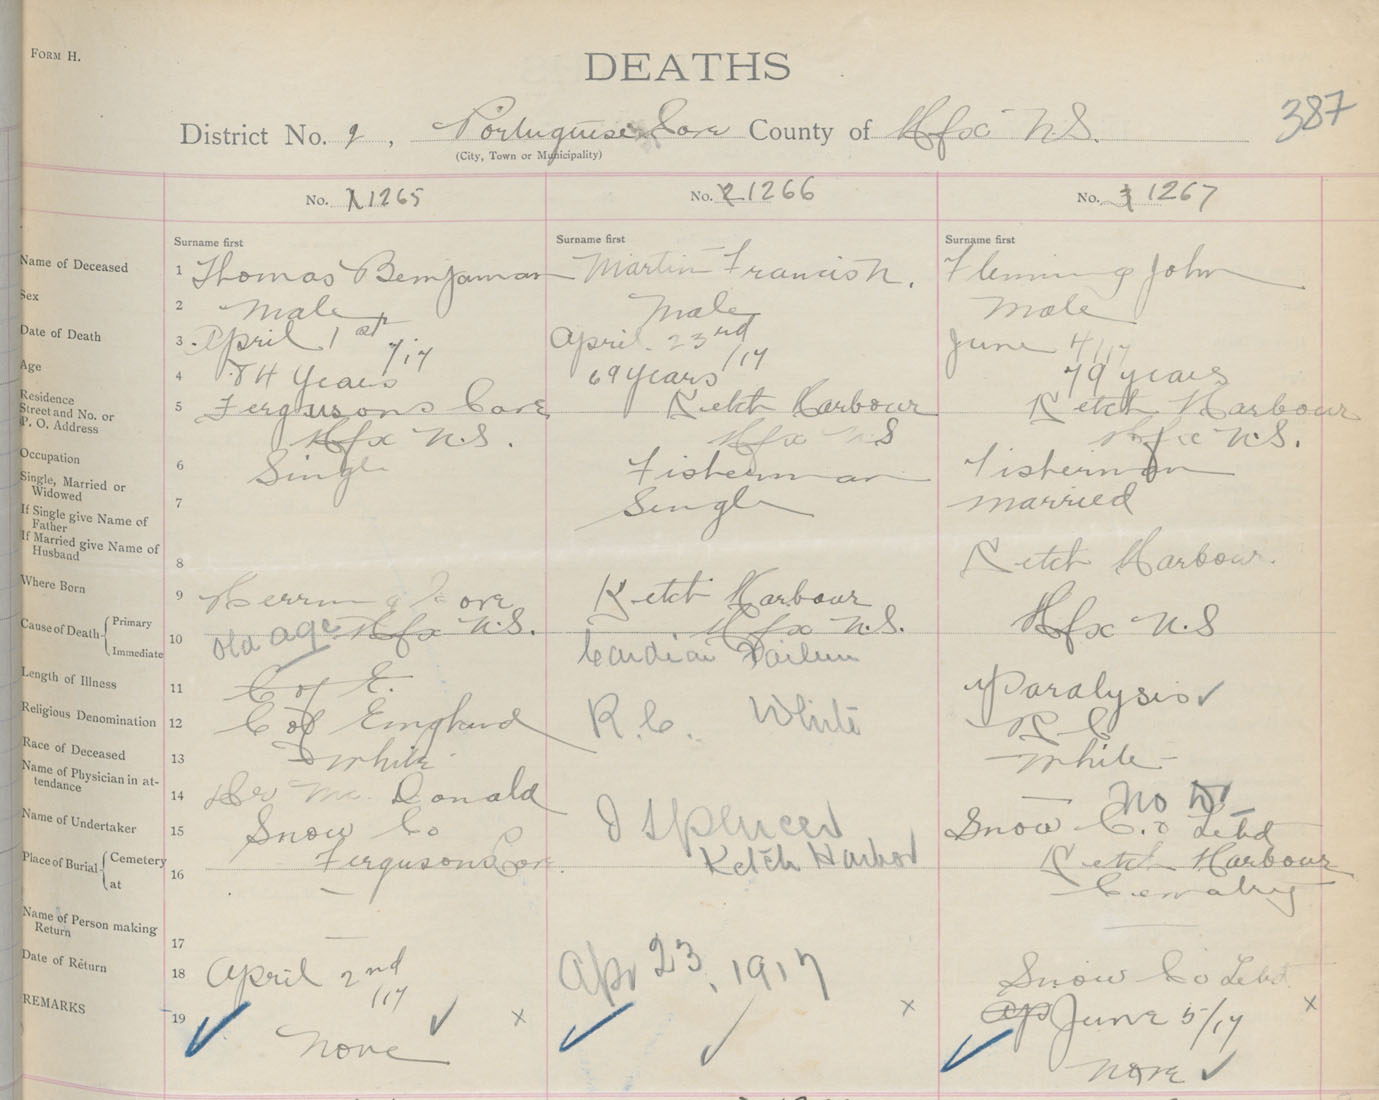 FORM H.
DEATHS
387
District No. 9, Portuguese Cove County of Hfx N.S.
(City, Town or Municipality)
No. 1 1265 No. 2 1266 No. 3 1267
Surname first Surname first Surname first
Name of Deceased 1 Thomas Benjaman Martin Francis N. Fleming John
Sex 2 Male Male Male
Date of Death 3 April 1st /17 April 23rd /17 June 4/17
Age 4 84 Years 69 years 79 years
Residence Street and No. or P. O. Address 5 Fergusons Cove Ketch Harbour Ketch Harbour
Hfx N.S. Hfx N.S Hfx N.S.
Occupation 6 Single Fisherman Fisherman
Single, Married or Widowed 7 Single married
If Single give Name of Father
If Married give Name of Husband 8 Ketch Harbour.
Where Born 9 Herring Cove Ketch Harbour Hfx N.S
Hfx N.S. Hfx N.S.
Cause of Death { Primary Immediate 10 old age Cardiac Failure
Length of Illness 11 C of E. Paralysis
Religious Denomination 12 C of England R.C. White R C
Race of Deceased 13 White White
Name of Physician in attendance 14 Dr Mc Donald — No Dr —
Name of Undertaker 15 Snow Co J Spencer Snow Co Letd
Place of Burial { Cemetery at 16 Ferguson Cove Ketch Harbor Ketch Harbour
Cematry
Name of Person making Return 17
Date of Return 18 April 2nd /17 Apr 23, 1917 Snow Co Letd
REMARKS 19 None x x Ap June 5/17 x
None